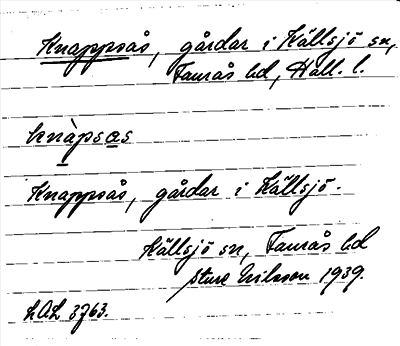 Knappsås, gårdar i Källsjö sn,
Faurås hd, Hall. l.
knàpsas
Knappsås, gårdar i Källsjö.
Källsjö sn, Faurås hd
Sture Nilsson 1939.
LAL 3763.